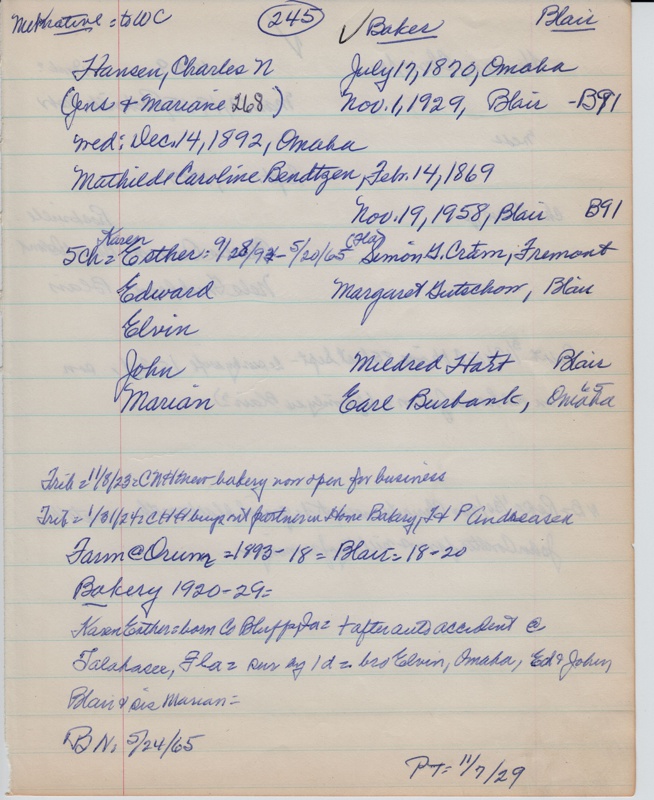 = to WC 245 ✓Baker Blair
Hansen, Charles N July 17, 1870, Omaha
(Jens + Mariane 268) Nov. 1, 1929, Blair -B91
wed: Dec. 14, 1892, Omaha
Mathilde Caroline Bendtzen, Feb. 14, 1869
Nov. 19, 1958, Blair B91
Karen (Fla)
5 Ch = Esther = 9/28/93 - 5/20/65 Simon G. , Fremont
Edward Margaret Gutschow, Blair
Elvin
John Mildred Hart Blair
Marian Earl Burbank, Omaha 65
Trib = 11/8/23 = CNH new bakery now open for business
Trib = 1/31/24 = CHH buys out partner in Home Bakery, F H P Andreasen
Farm @ Orum = 1893-18 = Blair = 18-20
Bakery 1920-29 =
Karen Esther = born Co Bluffs, Ia = + after auto accident @
Talahasee, Fla = sur by 1 d = bro Elvin, Omaha, Ed & John,
Blair & sis Marian =
B N: 5/24/65
PT = 11/7/29